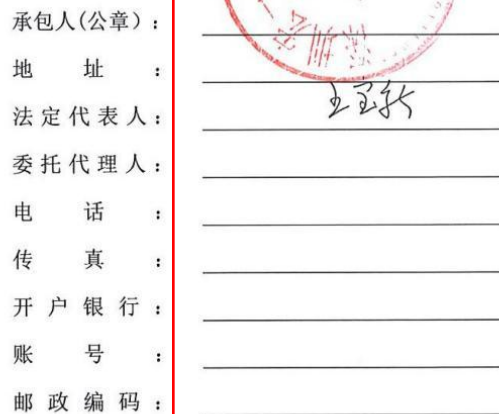 承包人(公章):
地址:
法定代表人: 王宝新
委托代理人:
电话:
传真:
开户银行:
账号:
邮政编码: